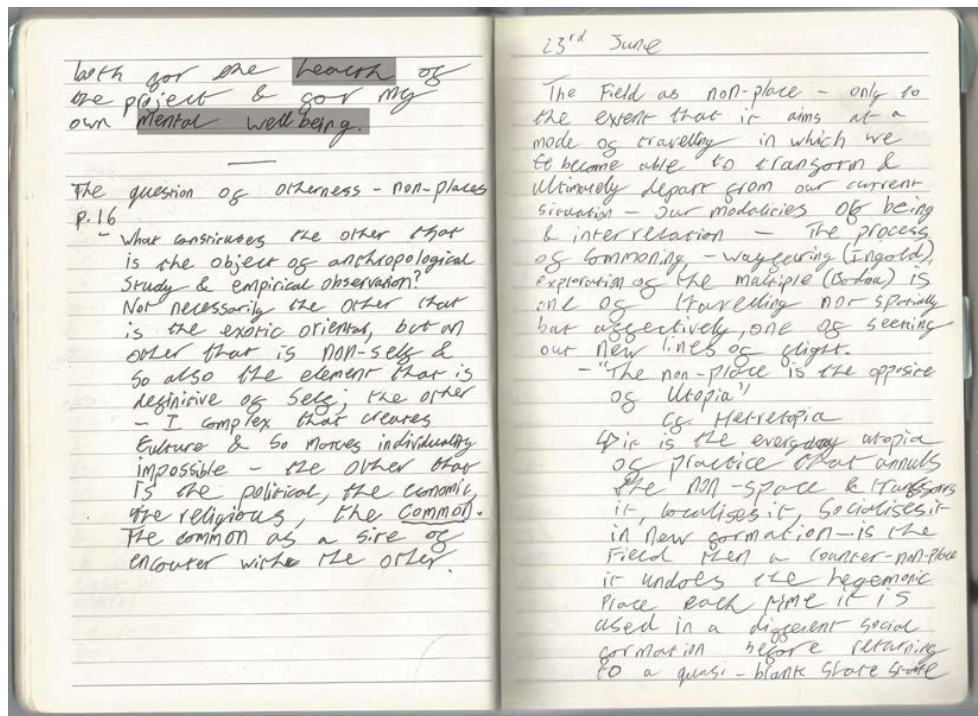 both for the health of
the project & for my
own mental wellbeing.
The question of otherness - non-places
p.16
- What constitutes the other that
is the object of anthropological
study & empirical observation?
Not necessarily the other that
is the exotic oriental, but an
other that is non-self &
so also the element that is
definitive of self; the other
- I complex that creates
culture & so makes individuality
impossible - the other that
is the political, the economic,
the religious, the Common.
The common as a site of
encouter with the other.
23rd June
The Field as non-place - only to
the extent that it aims at a
mode of travelling in which we
become able to transform &
ultimately depart from our current
situation - our modalities of being
& interrelation - The process
of commoning, - wayfaring (Ingold),
exploration of the multiple is
one of travelling not spatially
but affectively, one of seeking
out new lines of flight.
- "The non-place is the opposite
of Utopia"
cf. Hetretopia
↳ it is the everyday utopia
of practice that annuls
the non-space & transforms
it, localises it, socialises it
in new formation - is the
Field then a counter-non-place
it undoes the hegemonic
place each time it is
used in a different social
formation before returning
to a quasi-blank slate state